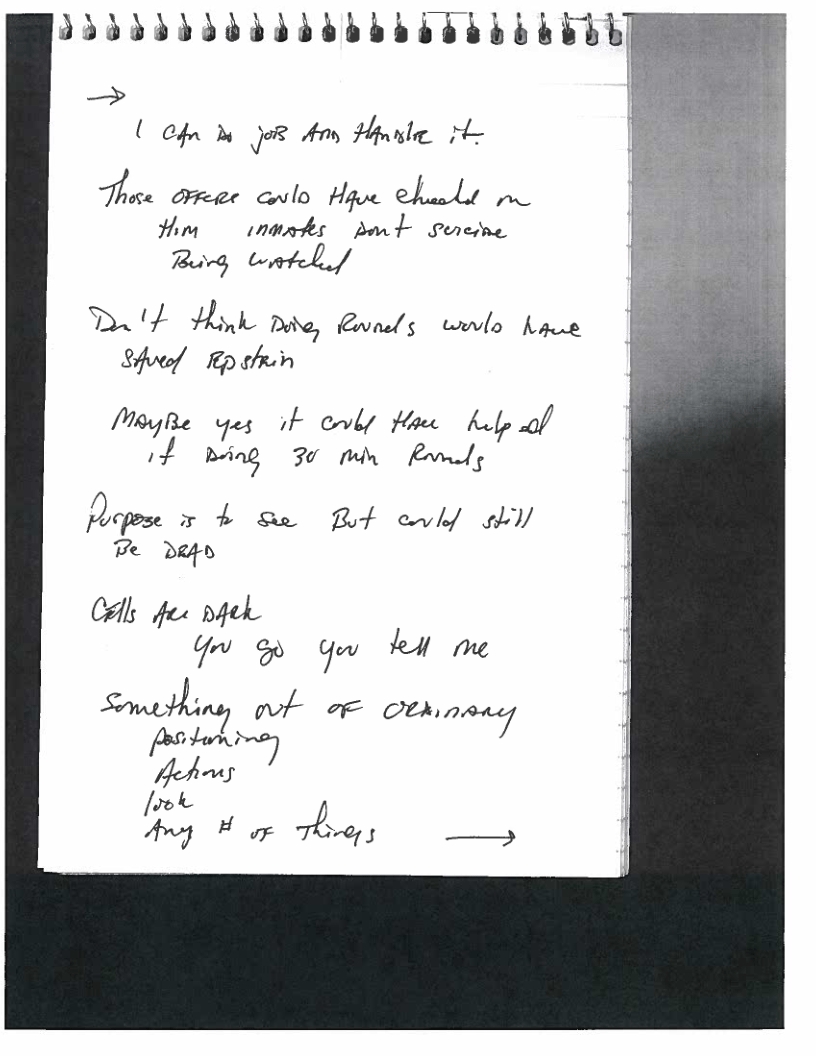 →
I CAN DO JOB AND HANDLE it.
Those OFFICERS COULD HAVE checked on
HIM INMATES DON'T SUICIDE
Being WATCHED
Don't think Doing Rounds would have
SAVED EPSTEIN
MAYBE yes it could HAVE helped
if Doing 30 min Rounds
Purpose is to See But could still
Be DEAD
Cells Are DARK
you go you tell me
Something out OF ORDINARY
Positioning
Actions
look
Any # OF Things →